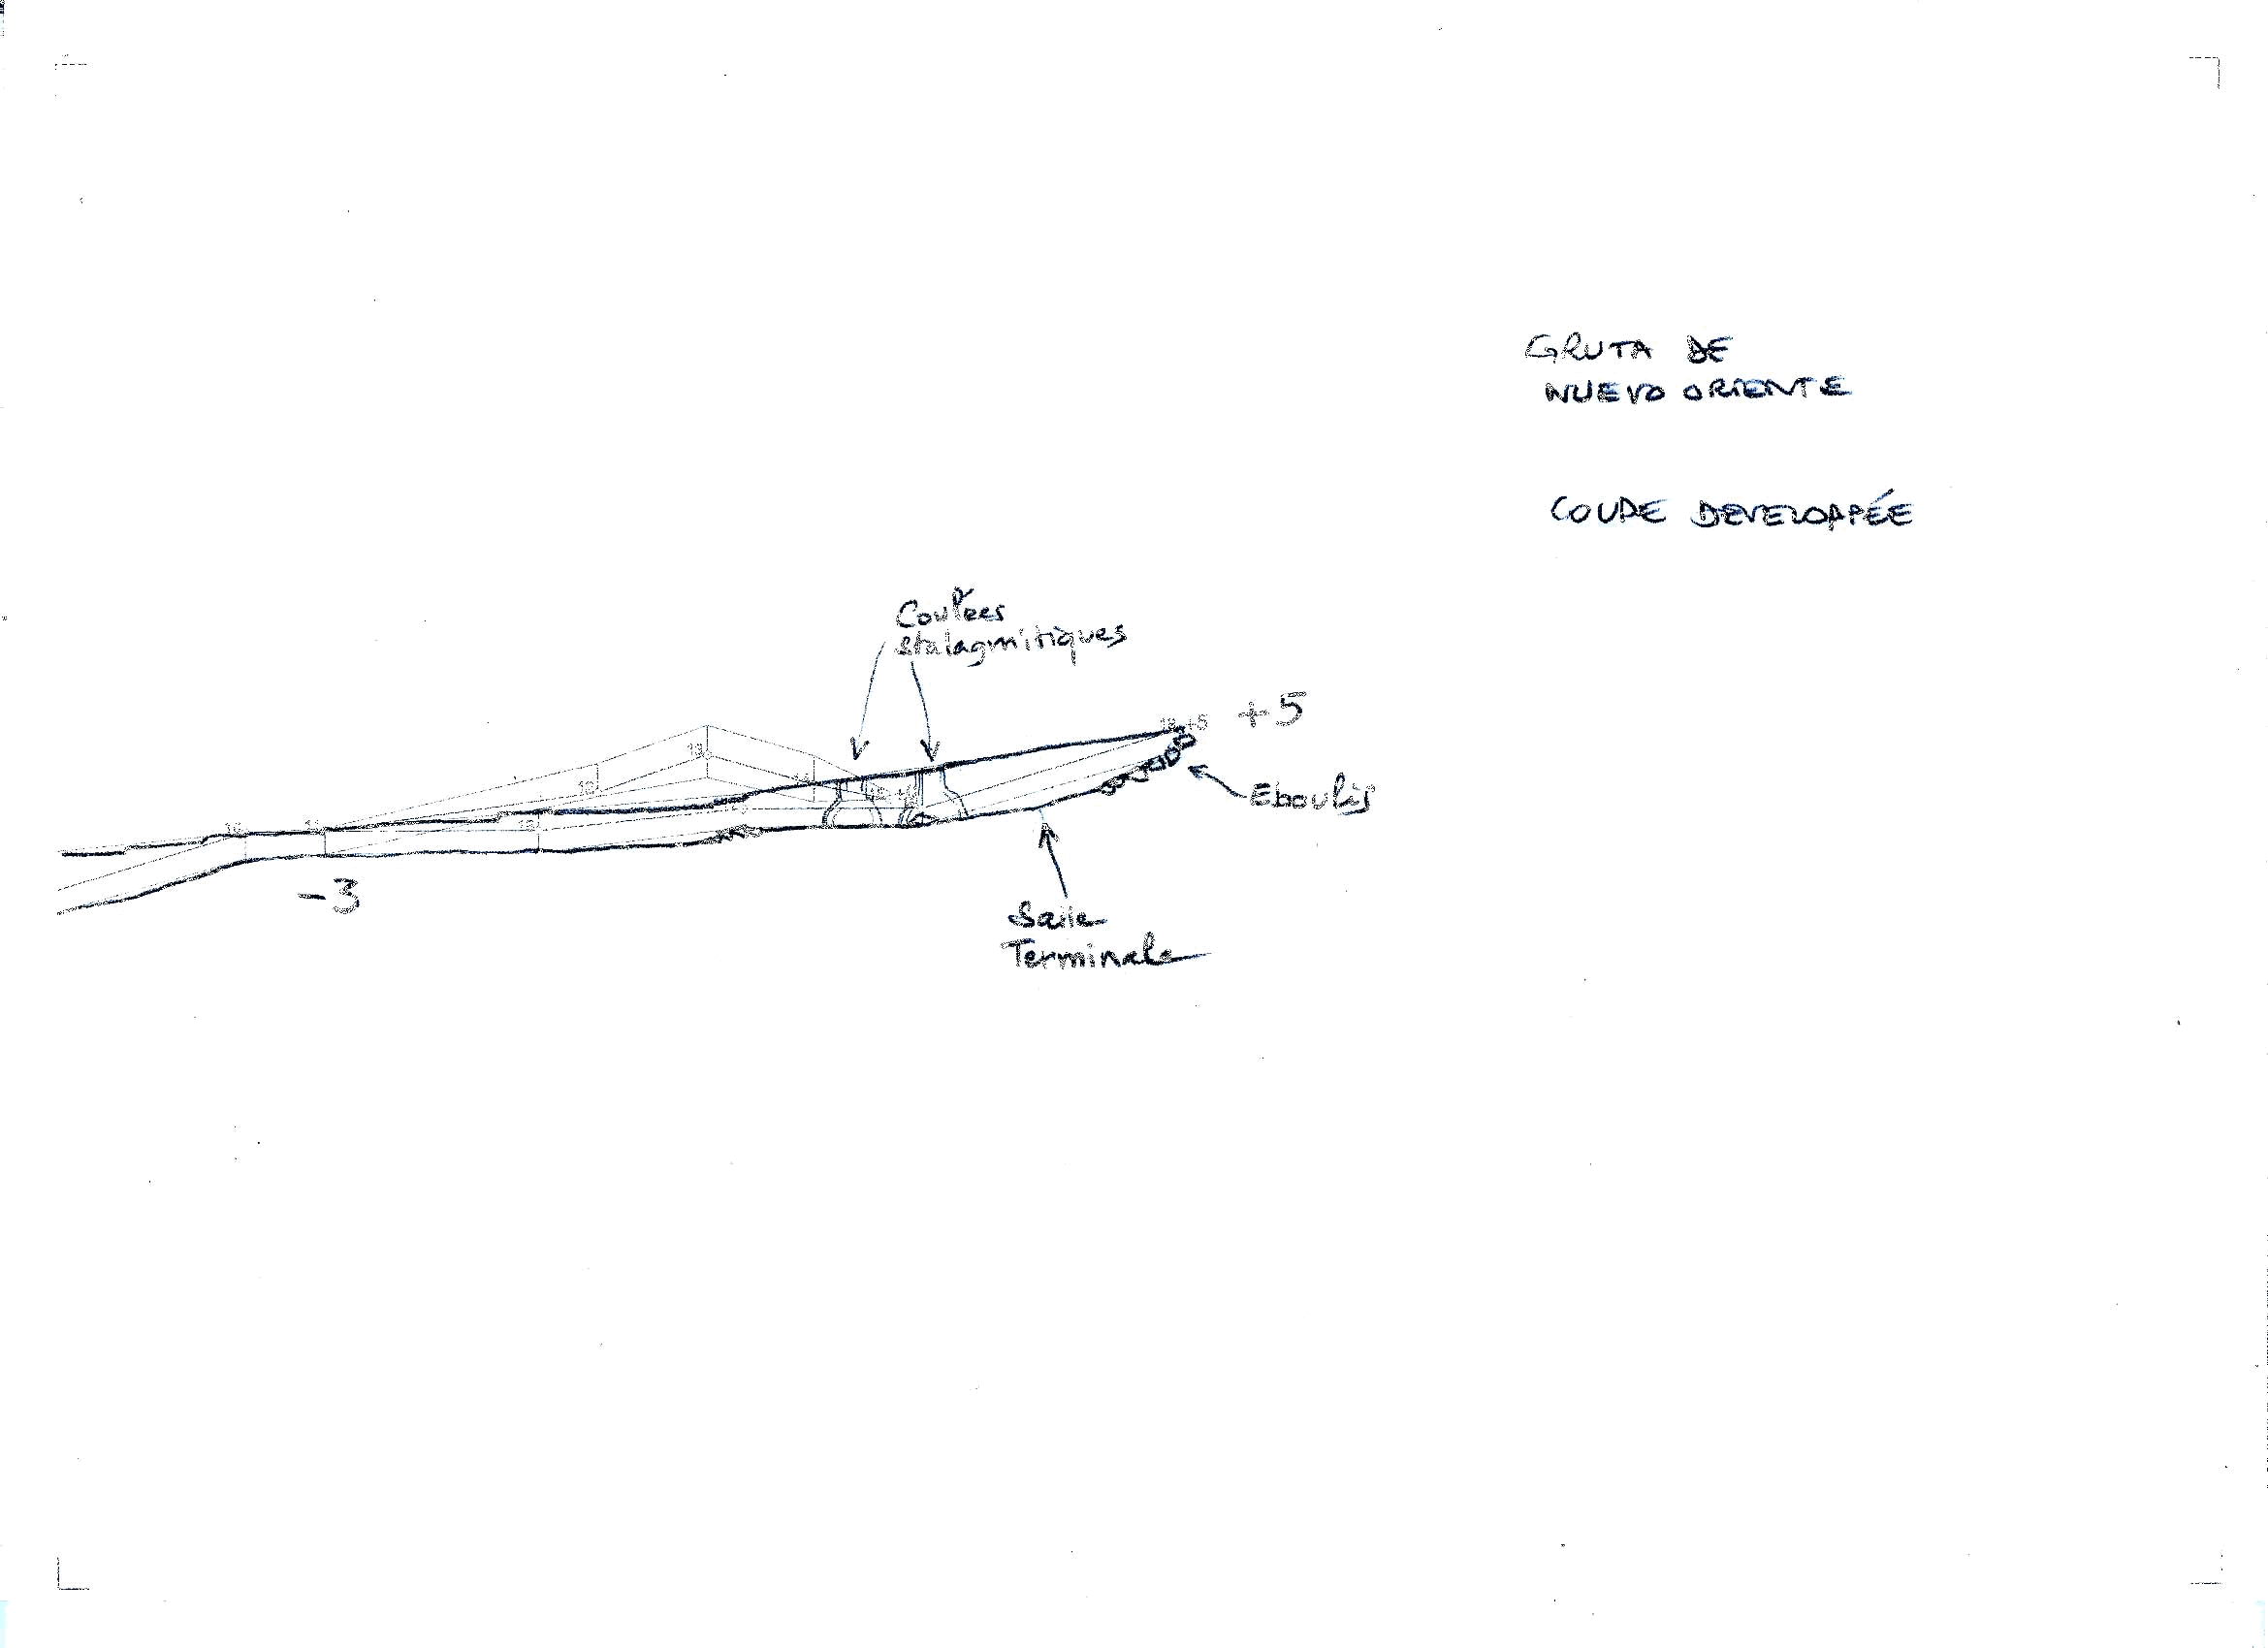 GRUTA DE
NUEVO ORIENTE
COUPE DEVELOPPÉE
Coulées
stalagmitiques
+5
Eboulis
-3
Salle
Terminale